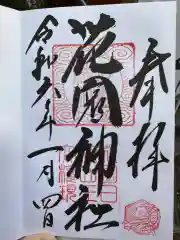 奉拝
花岡神社
令和六年一月四日